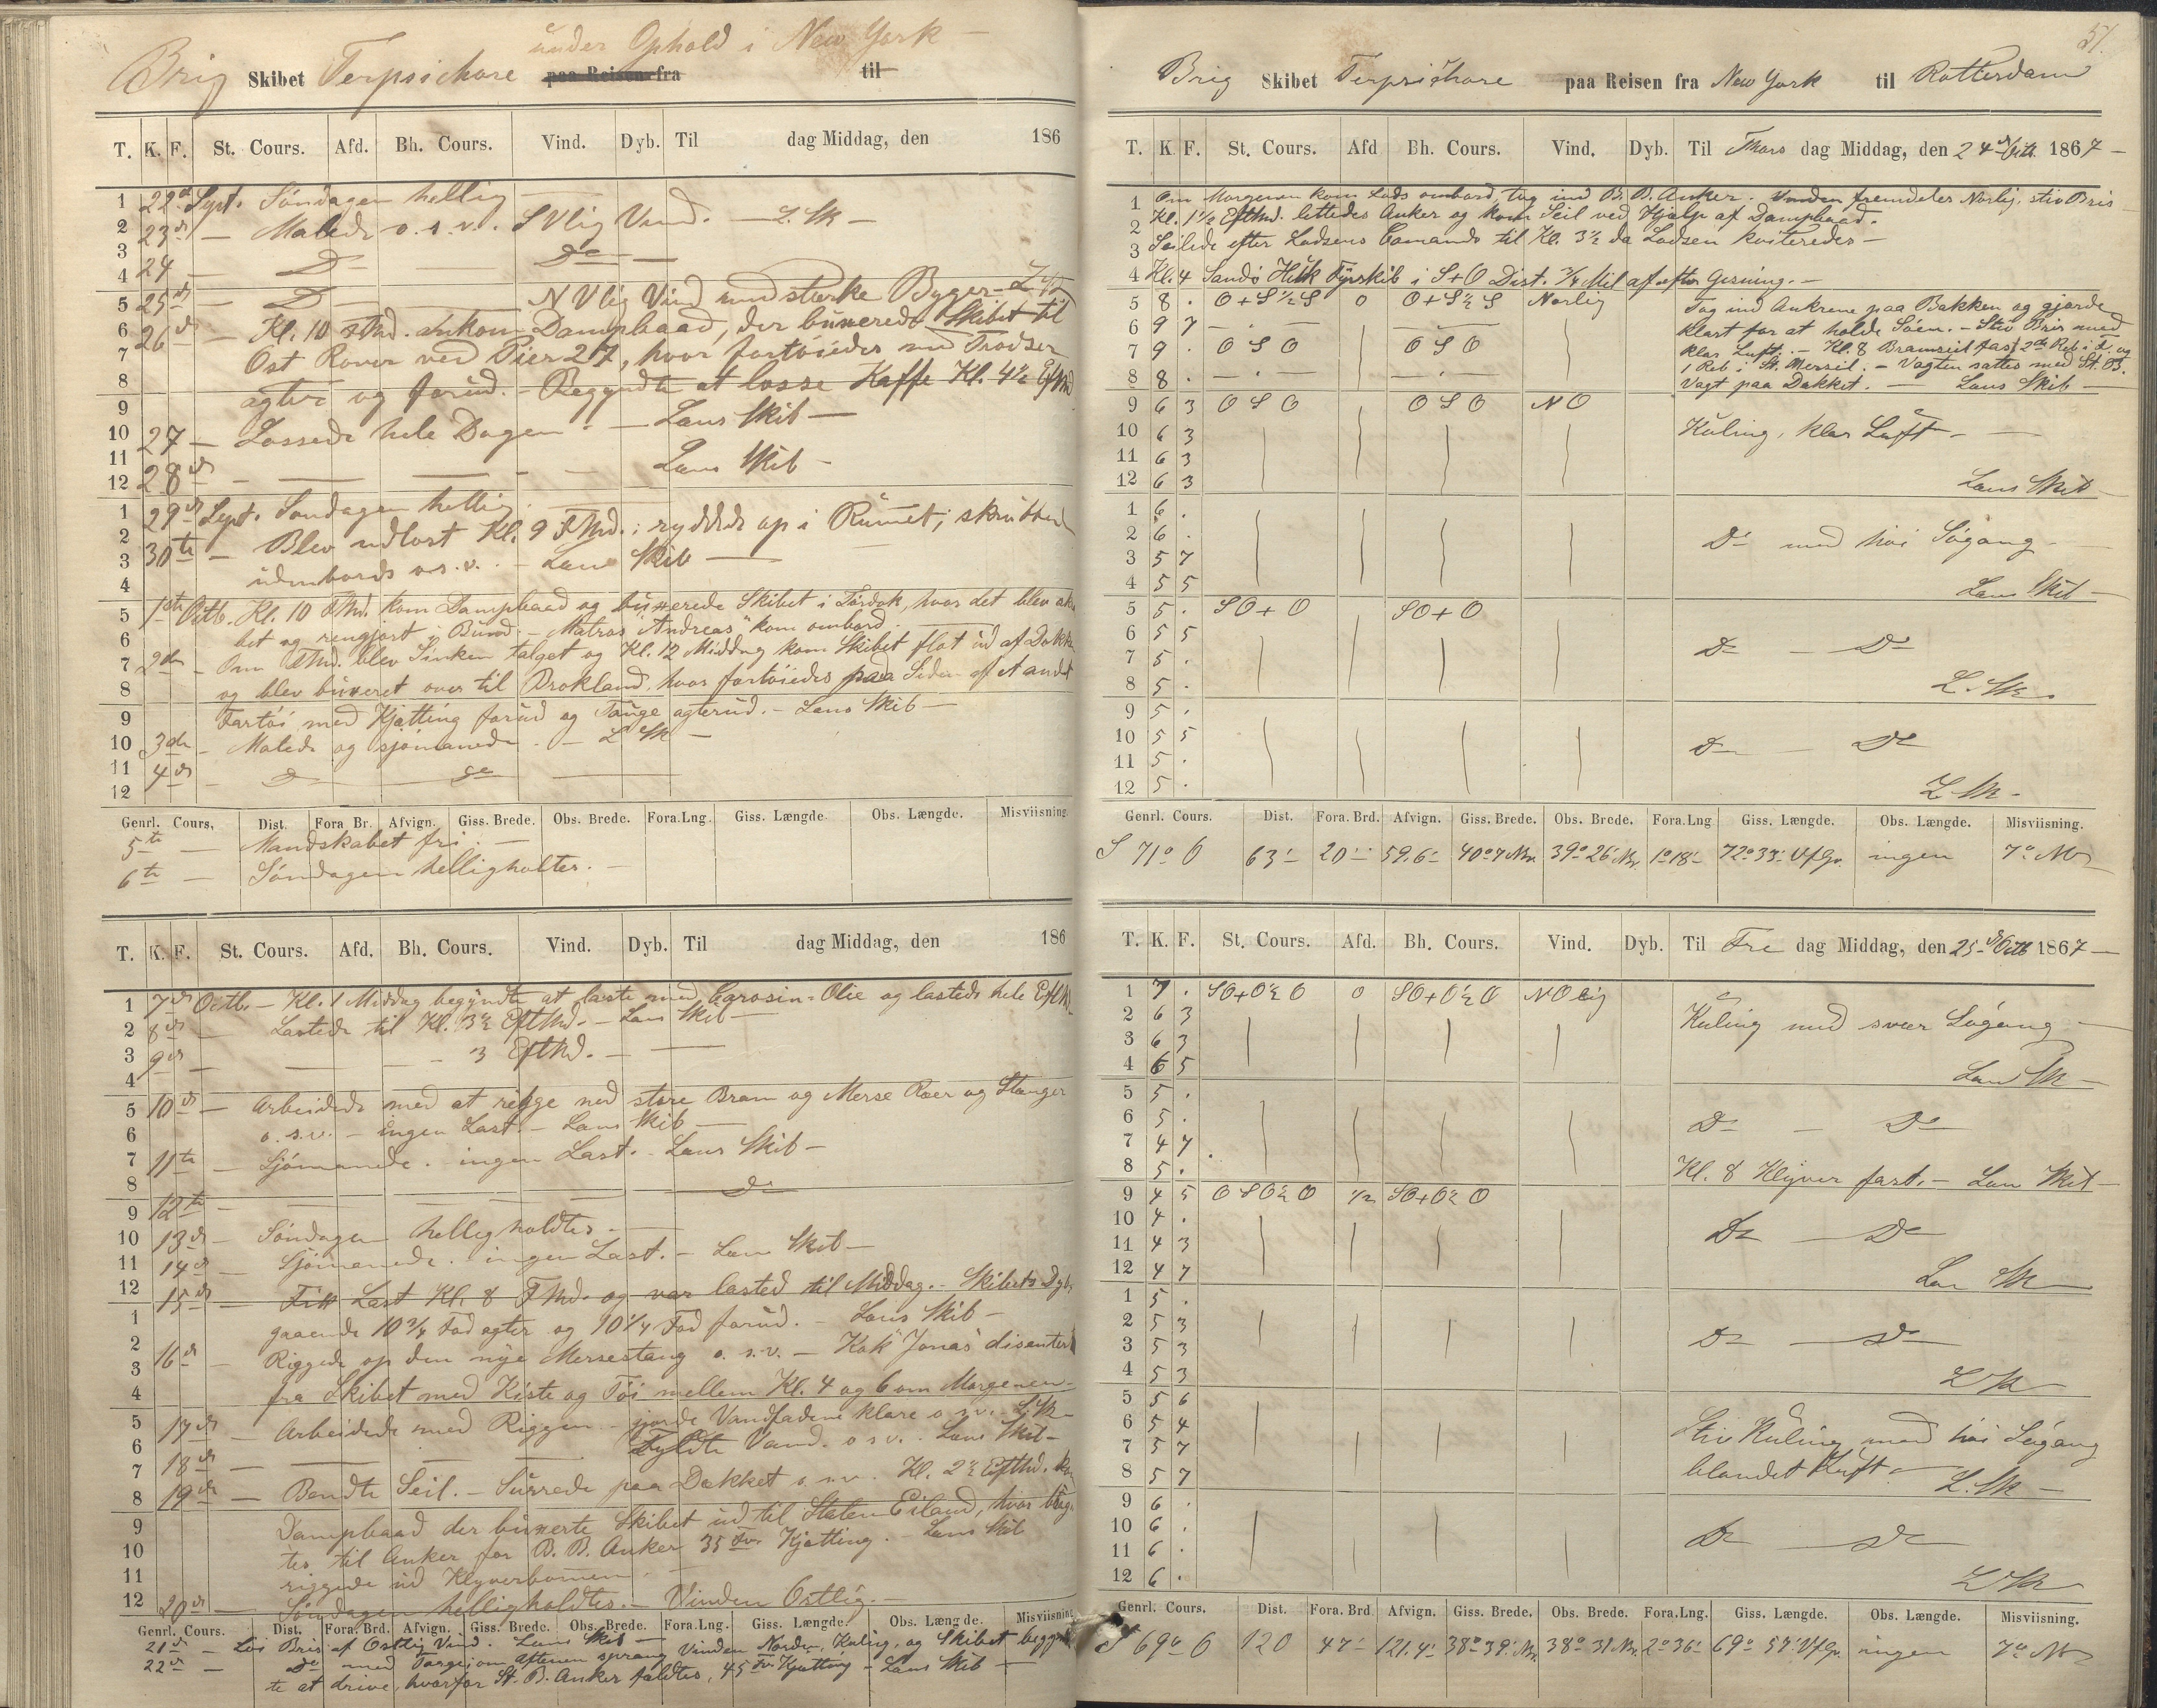 under Ophold i New York —
Brig Skibet Terpsichore paa Reisen fra til
T. K. F. St. Cours. Afd. Bh. Cours. Vind. Dyb. Til dag Middag, den 186
22d Sept. Söndagen hellig —
23d — Malede o.s.v. SVlig Vind. — L. Sk —
24 — Do — Do —
25d — Do NVlig Vind med stærke Byger —
26d — Kl. 10 FMd. ankom Dampbaad, der buxerede Skibet til
Ost Rover ved Pier 27, hvor fortöiedes med Trodser
agter og forud. — Begyndte at losse Kaffe Kl. 4½ EfMd
27 — Lossede hele Dagen. — Lens Skib —
28d — — — Lens Skib —
29d Sept. Söndagen hellig
30te — Blev udlost Kl. 9 FMd.; ryddede op i Rumet; skrubbed
udenbords o.s.v. — Lens Skib —
1ste Octb. Kl. 10 FMd. kom Dampbaad og buxerede Skibet i Tördok, hvor det blev
bet og rengjort i Bund. — Matros "Andreas" kom ombord.
2den — Om FMd. blev Sinken talget og Kl. 12 Middag kom Skibet flot ud af Dokken
og blev buxeret over til Brokland, hvor fortöiedes paa Siden af et andet
Fartöi med Kjætting forud og Tauge agterud. — Lens Skib —
3de — Malede og sjömanede. — L Sk —
4d — Do — do —
Genrl. Cours. Dist. Fora Br. Afvign. Giss. Brede. Obs. Brede. Fora.Lng. Giss. Længde. Obs. Længde. Misviisning
5te — Mandskabet fri. —
6te — Söndagen helligholtes. —
T. K. F. St. Cours. Afd. Bh. Cours. Vind. Dyb. Til dag Middag, den 186
7d Octb. — Kl. 1 Middag begyndte at laste med Carosin-Olie og lastede hele EfMd
8d — Lastede til Kl. 3½ EftMd. — Lens Skib —
9d — — — 3 EftMd. — —
10d — Arbeidede med at rigge ned store Bram og Merse Raer og Stænger
o.s.v. — ingen Last. — Lens Skib —
11te — Sjömanede. — ingen Last. — Lens Skib —
12te — — — Do
13d — Söndagen helligholdtes. —
14d — Sjömanede. ingen Last. — Lens Skib —
15d — Fik Last Kl. 8 FMd. og var lasted til Middag. — Skibets Dyb
gaaende 10¾ Fod agter og 10¼ Fod forud. — Lens Skib —
16d — Riggede op den nye Mersestang o.s.v. — Kok "Jonas" disenterte
fra Skibet med Kiste og Töi mellem Kl. 4 og 6 om Morgenen —
17d — Arbeidede med Riggen — gjorde Vandfadene klare o.s.v. — L. Sk —
18d — — — Fyldte Vand. o s v. Lens Skib —
19d — Bendte Seil. — Surrede paa Dækket o.s.v. Kl. 2½ EftMd. kom
Dampbaad der buxerte Skibet ud til Staten Eiland, hvor
tes til Anker for B. B. Anker 35 Fv. Kjætting. — Lens Skib
riggede ud Klyverbommen. —
20d — Söndagen helligholdtes. — Vinden Ostlig. —
Genrl. Cours. Dist. Fora. Brd. Afvign. Giss. Brede. Obs. Brede. Fora.Lng. Giss. Længde. Obs. Længde. Misviisning
21d — Löi Bris af Ostlig Vind. Lens Skib —
22d — Do med Taage; om Aftenen sprang Vinden Norden, Kuling, og Skibet begynd
te at drive, hvorfor St. B. Anker faldtes, 45 Fv. Kjætting — Lens Skib —
51.
Brig Skibet Terpsichore paa Reisen fra New York til Rotterdam
T. K F. St. Cours. Afd Bh. Cours. Vind. Dyb. Til Thors dag Middag, den 24d Octb. 1867 —
Om Morgenen kom Lods ombord, tog ind B. B. Anker. Vinden fremdeles Norlig, stiv Bris
Kl. 1½ EftMd. lettedes Anker og kom Seil ved Hjælp af Dampbaad.
Seilede efter Lodsens Comando til Kl. 3½ da Lodsen kviteredes —
Kl. 4 Sandö Huk Fyrskib i S+O Dist. ¾ Mil af efter Gisning. —
5 8 . O+S½S 0 O+S½S Norlig Tog ind Ankrene paa Bakken og gjorde
6 9 7 — . — — klart for at holde Söen. — Stiv Bris med
7 9 . OSO OSO klar Luft. — Kl. 8 Bramseil fast 2de Reb i do og
8 8 . — . — — . — 1 Reb i St. Mersseil. — Vagten sattes med St. B.
Vagt paa Dækket. — Lens Skib —
9 6 3 OSO OSO NO
10 6 3 Kuling, klar Luft —
11 6 3
12 6 3 Lens Skib —
1 6 .
2 6 . Do med höi Sögang —
3 5 7
4 5 5 Lens Skib —
5 5 . SO+O SO+O
6 5 5 Do — Do
7 5 .
8 5 . L. Sk —
9 5 .
10 5 5 Do — Do
11 5 .
12 5 . L. Sk —
Genrl. Cours. Dist. Fora. Brd. Afvign. Giss. Brede. Obs. Brede. Fora.Lng Giss. Længde. Obs. Længde. Misviisning.
S 71° O 63' 20' 59.6' 40° 7' Nr. 39° 26' Nr. 1° 18' 72° 33' V f Gr. ingen 7° NV
T. K. F. St. Cours. Afd. Bh. Cours. Vind. Dyb. Til Fre dag Middag, den 25d Octb 1867 —
1 7 . SO+O½O 0 SO+O½O NOlig
2 6 3 Kuling med svær Sögang —
3 6 3
4 6 5 Lens Sk —
5 5 .
6 5 . Do — Do
7 4 7
8 5 . Kl. 8 Klyver fast. — Lens Skib —
9 4 5 OSO½O ½ SO+O½O
10 4 . Do — Do
11 4 3
12 4 7 Len Sk —
1 5 .
2 5 3 Do — Do
3 5 3
4 5 3 L Sk
5 5 6
6 5 4 Stiv Kuling med höi Sögang
7 5 7 blandet Luft —
8 5 7 L. Sk —
9 6 .
10 6 . Do — Do
11 6 .
12 6 . L Sk
Genrl. Cours. Dist. Fora. Brd. Afvign. Giss. Brede. Obs. Brede. Fora.Lng. Giss. Længde. Obs. Længde. Misviisning.
S 69° O 120 47' 121.4' 38° 39' Nr. 38° 31' Nr. 2° 36' 69° 57' V f Gr. ingen 7° NV